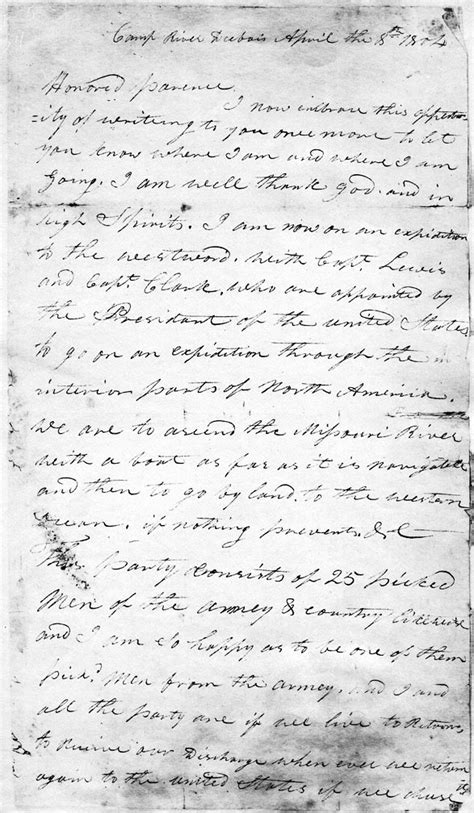 Camp River Dubois April the 8th 1804
Honored Parence.
I now imbrace this oppertu-
=ity of writeing to you once more to let
you know where I am and where I am
going. I am well thank God. and in
high Spirits. I am now on an expidition
to the westward, with Capt. Lewis
and Capt. Clark, who are appointed by
the President of the united States
to go on an expidition through the
interior parts of North America.
We are to ascend the Missouri River
with a boat as far as it is navigable
and then to go by land, to the western
ocean, if nothing prevents. &c
This party consists of 25 picked
Men of the armey & country likewise
and I am so happy as to be one of them
pick'd Men from the armey. and I and
all the party are if we live to Return,
to Receive our Discharge when ever we return
again to the united States if we chuse